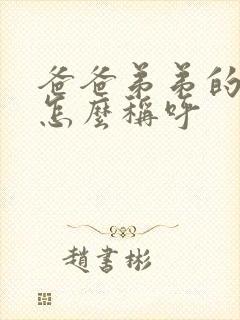 爸爸弟弟的
怎麼稱呼
趙書彬